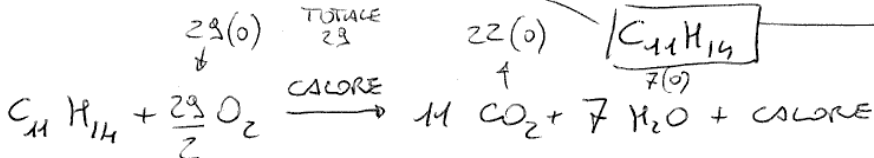 29(0) TOTALE 29 22(0) C₁₁H₁₄
↓ ↑ 7(0)
C₁₁H₁₄ + 29/2 O₂ CALORE → 11 CO₂ + 7 H₂O + CALORE